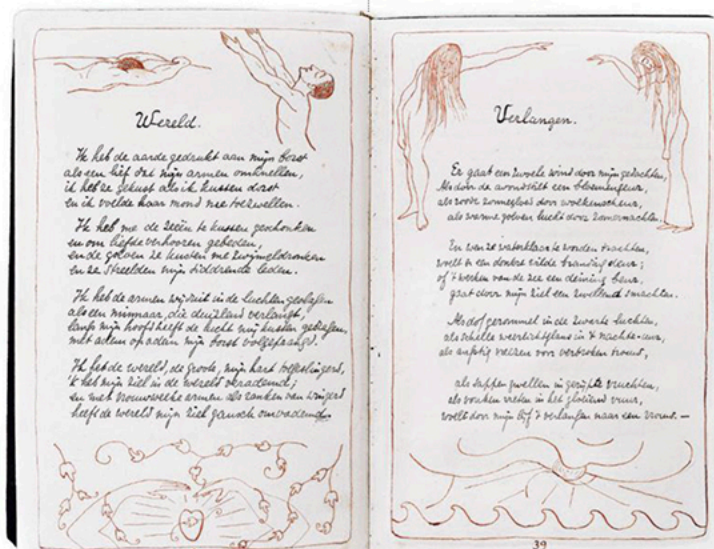 Wereld.
Ik heb de aarde gedrukt aan mijn borst
als een lief dat mijn armen omknellen,
ik heb ze gekust als ik kussen dorst
en ik voelde haar mond me toezwellen.
Ik heb me de zeeën te kussen geschonken
en om liefde verhooren gebeden,
en de golven ze kusten me zwijmeldronken
en ze streelden mijn sidderende leden.
Ik heb de armen wijd uit in de luchten geheven
als een minnaar, die verlangt,
langs mijn hoofd heeft de lucht mij kussen gegeven,
met adem op adem mijn borst
Ik heb de wereld, de groote, mijn hart
'k heb mijn ziel in de wereld verademd;
en met vrouweweeke armen als ranken van wingerd
heeft de wereld mijn ziel gansch omvademd.
Verlangen.
Er gaat een zwoele wind door mijn gedachten,
Als door de avondstilt een bloemengeur,
als roode zonneglans door wolkenscheur,
als warme golven lucht door zomernachten.
En van ze waterklaar te worden trachten,
woelt er een donkre wilde branding deur;
of 't werken van de zee een deining beur,
gaat door mijn ziel een zwellend smachten.
Als dof gerommel in de zwarte luchten,
als schelle weerlichtglans in 't nachte-uur,
als angstig reizen voor
als sappen zwellen in gerijpte vruchten,
als vonken vreten in het gloeiend vuur,
woelt door mijn lijf 't verlangen naar een vrouw. —
39